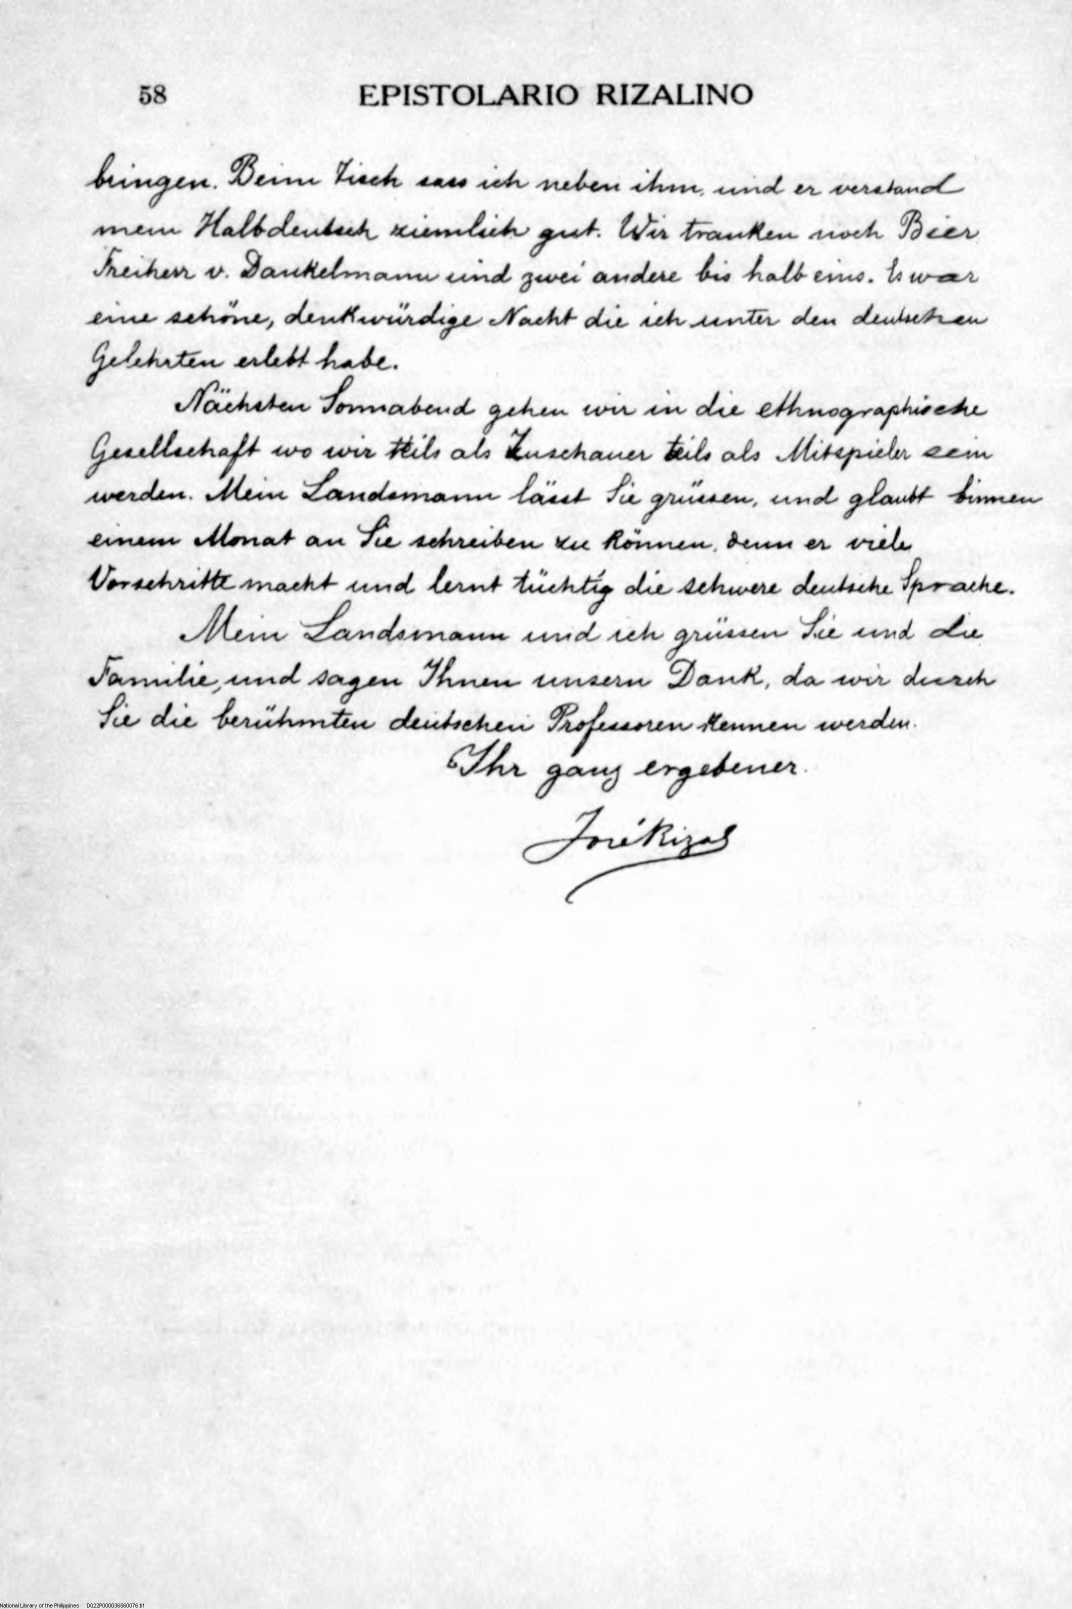 58 EPISTOLARIO RIZALINO
bringen. Beim Tisch sass ich neben ihm, und er verstand
mein Halbdeutsch ziemlich gut. Wir tranken noch Bier
Freiherr v. Dankelmann und zwei andere bis halb eins. Es war
eine schöne, denkwürdige Nacht die ich unter den deutschen
Gelehrten erlebt habe.
Nächsten Sonnabend gehen wir in die ethnographische
Gesellschaft wo wir teils als Zuschauer teils als Mitspieler sein
werden. Mein Landsmann lässt Sie grüssen, und glaubt binnen
einem Monat an Sie schreiben zu können, denn er viele
Vorschritte macht und lernt tüchtig die schwere deutsche Sprache.
Mein Landsmann und ich grüssen Sie und die
Familie, und sagen Ihnen unsern Dank, da wir durch
Sie die berühmten deutschen Professoren kennen werden.
Ihr ganz ergebener.
José Rizal
National Library of the Philippines D022P000036860076.tif